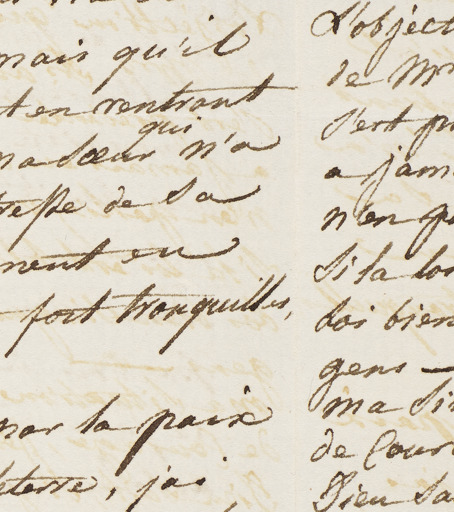 mais qu'il
t en rentrant
qui
ma sœur n'a
de sa
ment eu
fort tranquilles,
par la paix
leterre, j'ai
L'object
de Mr
s'est pr
a jam
n'en p
si la lo
dois bien
gens —
ma si
de Cour
Dieu sa